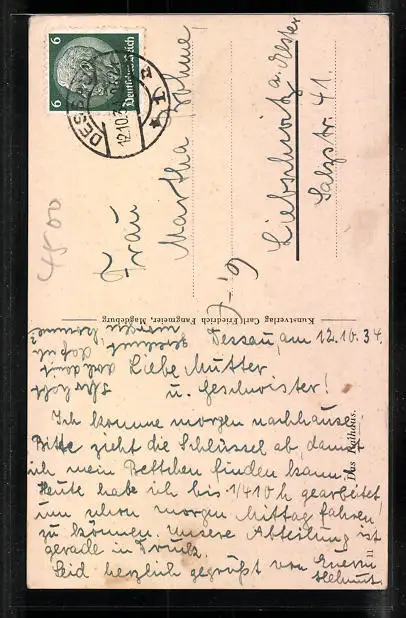 Dessau, am 12.10.34.
Liebe Mutter
u. Geschwister!
Ich komme morgen nachhause.
Bitte zieht die Schlüssel ab, damit
ich mein Bettchen finden kann.
Heute habe ich bis 1/4 10 h gearbeitet,
um schon morgen Mittag fahren
zu können. Unsere Abteilung ist
gerade in Druck.
Seid herzlich gegrüßt von Eurem
Helmut.
morgen komme?
daß ich
Kunstverlag Carl Friedrich Fangmeier, Magdeburg
11
Das Rathaus.
Frau
Martha Böhme
Liebschwitz a. Elster
Salzstr. 41.
6 Deutsches Reich 6
DESSAU
12.10.3
* 1 z
4500